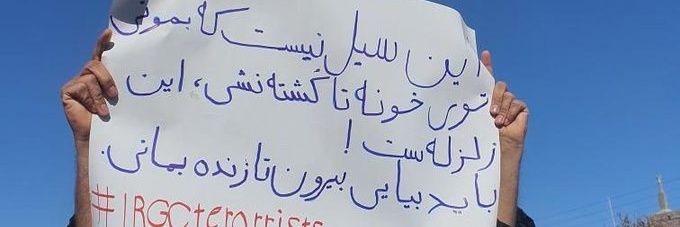 این سیل نیست که بمونی
توی خونه تا کشته نشی، این
زلزله‌ست!
باید بیایی بیرون تا زنده بمانی.
#IRGCterorrists